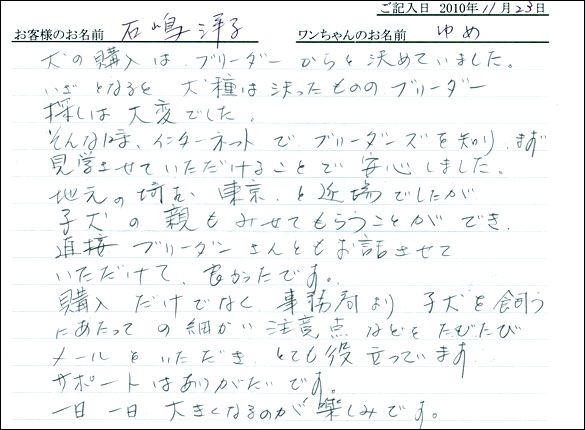 ご記入日 2010年 11月 23日
お客様のお名前 石嶋 洋子 ワンちゃんのお名前 ゆめ
犬の購入は、ブリーダーからと決めていました。
いざとなると 犬種は決ったもののブリーダー
探しは大変でした。
そんな時、インターネットで ブリーダーズを知り、まず
見学させていただけることで 安心しました。
地元の埼玉、東京、と近場でしたが
子犬の親もみせてもらうことができ、
直接 ブリーダーさんともお話させて
いただけて、良かったです。
購入だけでなく 事務局より 子犬を飼う
にあたっての細かい注意点などをたびたび
メールをいただき、とても役立っています
サポートはありがたいです。
一日一日 大きくなるのが楽しみです。